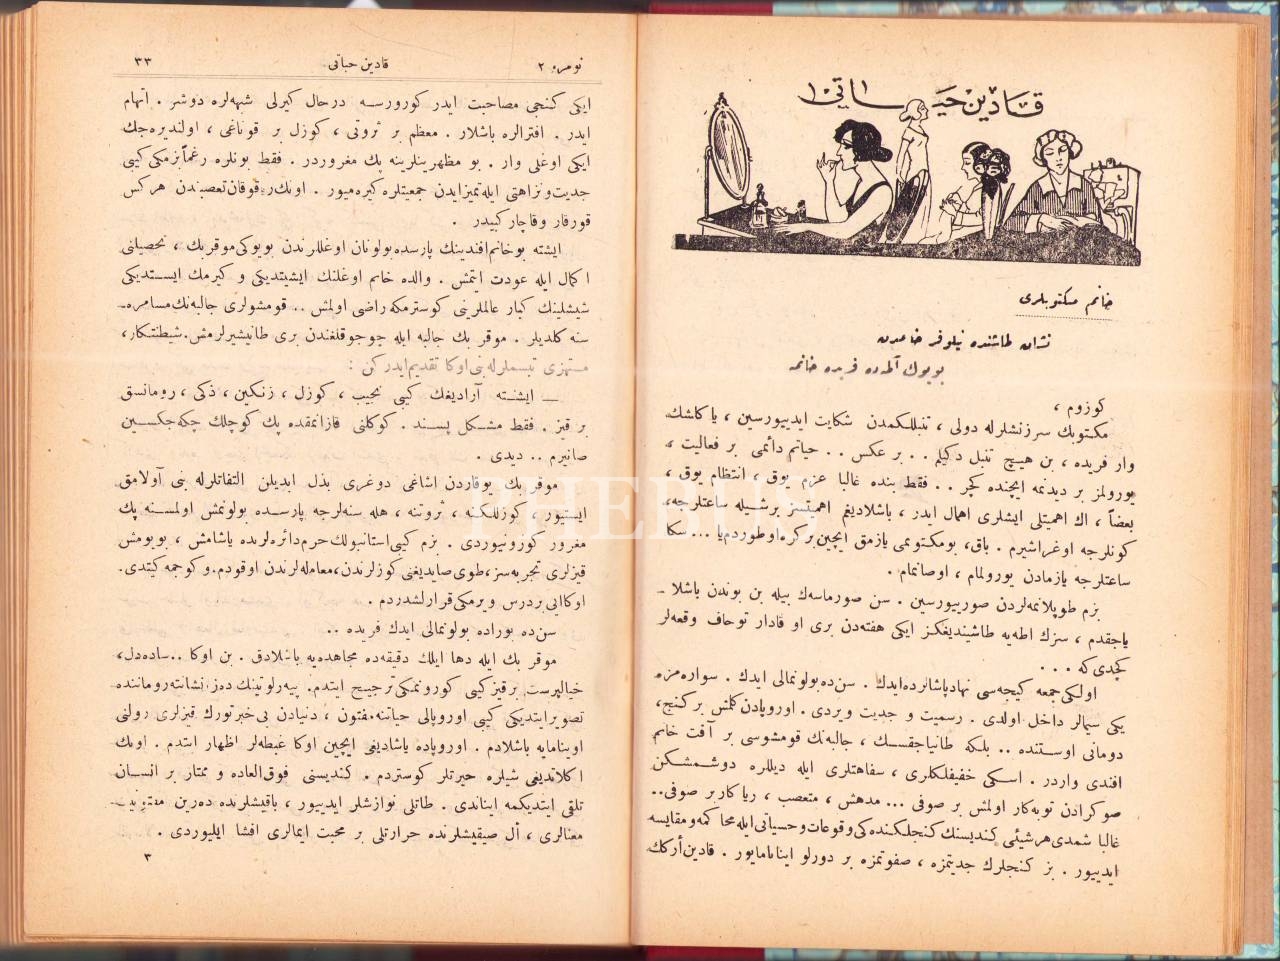 قادین حیاتی
خانم مکتوبلری
نشان طاشنده نیلوفر خانمدن
بویوک آطه‌ده فریده خانمه
کوزوم ،
مکتوبك سرزنشلرله دولی ، تنبللکمدن شکایت ایدییورسین ، یا کاشك
وار فریده ، بن هیچ تنبل دکیلم . . بر عکس . . حیاتم دائمی بر فعالیت ،
یورولمز بر دیدنمه ایچنده کچر . . فقط بنده غالبا عزم یوق ، انتظام یوق ،
بعضاً ، اك اهمیتلی ایشلری اهمال ایدر ، باشلادیغم اهمیتسز برشیله ساعتلرجه،
کونلرجه اوغراشیرم . باق، بومکتوبمی یازمق ایچین برکره اوطوردم یا ... سکا
ساعتلرجه یازمادن یورولمام ، اوصانمام .
بزم طوپلانمه‌لردن صورییورسین . سن صورماسه‌ك بیله بن بوندن باشلا ـ
یاجقدم ، سزك اطه‌یه طاشیندیغکز ایکی هفته‌دن بری او قادار توحاف وقعه‌لر
کچدی که . . .
اولکی جمعه کیجه‌سی نهاد پاشالرده ایدك . سن ده بولونمالی ایدك . سواره مزه
یکی سیمالر داخل اولدی . رسمیت و جدیت ویردی . اوروپادن کلمش بر کنج،
دومانی اوستنده .. بلکه طانیاجقسك ، جالبه‌نك قومشوسی بر آفت خانم
افندی واردر . اسکی خفیفلکلری ، سفاهتلری ایله دیللره دوشمشکن
صوکرادن توبه‌کار اولمش بر صوفی ... مدهش ، متعصب ، ریاکار بر صوفی..
غالبا شمدی هر شیئی کندیسنك کنجلکنده‌کی وقوعات و حسیاتی ایله محاکمه و مقایسه
ایدییور . بز کنجلرك جدیتمزه ، صفوتمزه بر دورلو اینانامایور . قادین أرکك
نومرو ٢ قادین حیاتی ٣٣
ایکی کنجی مصاحبت ایدر کورورسه درحال کیرلی شبهه‌لره دوشر . اتهام
ایدر . افترالره باشلار . معظم بر ثروتی ، کوزل بر قوناغی ، اولندیره‌جك
ایکی اوغلی وار . بو مظهریتلرینه پك مغروردر . فقط بونلره رغماً بزمکی کیبی
جدیت و نزاهتی ایله تمیز ایدن جمعیتلره کیره‌میور . اونك فوقان تعصبندن هرکس
قورقار و قاچار کیبیدر .
ایشته بو خانم افندینك پارسده بولونان اوغللرندن بویوکی موقر بك ، تحصیلنی
اکمال ایله عودت ایتمش . والده خانم اوغلنك ایشیتدیکی و کیرمك ایستدیکی
شیشلینك کبار عالملرینی کوسترمکه راضی اولمش .. قومشولری جالبه‌نك مسامره ـ
سنه کلدیلر . موقر بك جالبه ایله چوجوقلغندن بری طانیشیرلرمش. شیطنتکار،
مستهزی تبسملرله بنی اوکا تقدیم ایدرکن :
ـــ ایشته آرادیغك کیبی نجیب ، کوزل ، زنکین ، ذکی ، رومانسق
بر قیز . فقط مشکل پسند . کوکلنی قازانمقده پك کوچلك چکه‌جکسین
صانیرم .. دیدی .
موقر بك یوقاردن اشاغی دوغری بذل ایدیلن التفاتلرله بنی آولامق
ایستیور ، کوزللکنه ، ثروتنه ، هله سنه‌لرجه پارسده بولونمش اولمسنه پك
مغرور کورونیوردی . بزم کیبی استانبولك حرم دائره‌لرنده یاشامش ، بویومش
قیزلری تجربه‌سز، طوی صایدیغنی کوزلرندن، معامله‌لرندن اوقودم. و کوجمه کیتدی.
اوکا ایی بر درس ویرمکی قرارلشدردم .
سن ده بوراده بولونمالی ایدك فریده ..
موقر بك ایله دها ایلك دقیقه‌ده مجاهده‌یه باشلادق . بن اوکا .. ساده‌دل،
خیالپرست بر قیز کیبی کورونمکی ترجیح ایتدم. پیه‌رلوتینك ده‌زانشانته رومانننده
تصویر ایتدیکی کیبی اوروپالی حیاتنه مفتون ، دنیادن بی خبر تورك قیزلری رولنی
اوینامایه باشلادم . اوروپاده یاشادیغی ایچین اوکا غبطه‌لر اظهار ایتدم . اونك
اکلاتدیغی شیلره حیرتلر کوستردم . کندیسنی فوق العاده و ممتاز بر انسان
تلقی ایتدیکمه ایناندی . طاتلی نوازشلر ایدییور ، باقیشلرنده ده‌رین مفتونیت
معنالری ، أل صیقیشلرنده حرارتلی بر محبت ایمالری افشا ایلیوردی .
٣
PHEBUS